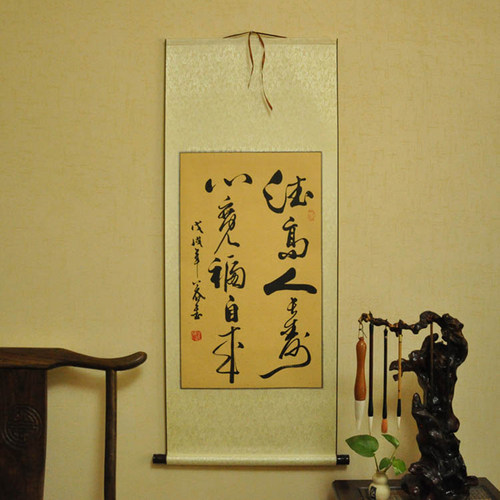 德高人长寿
心宽福自来
戊戌年